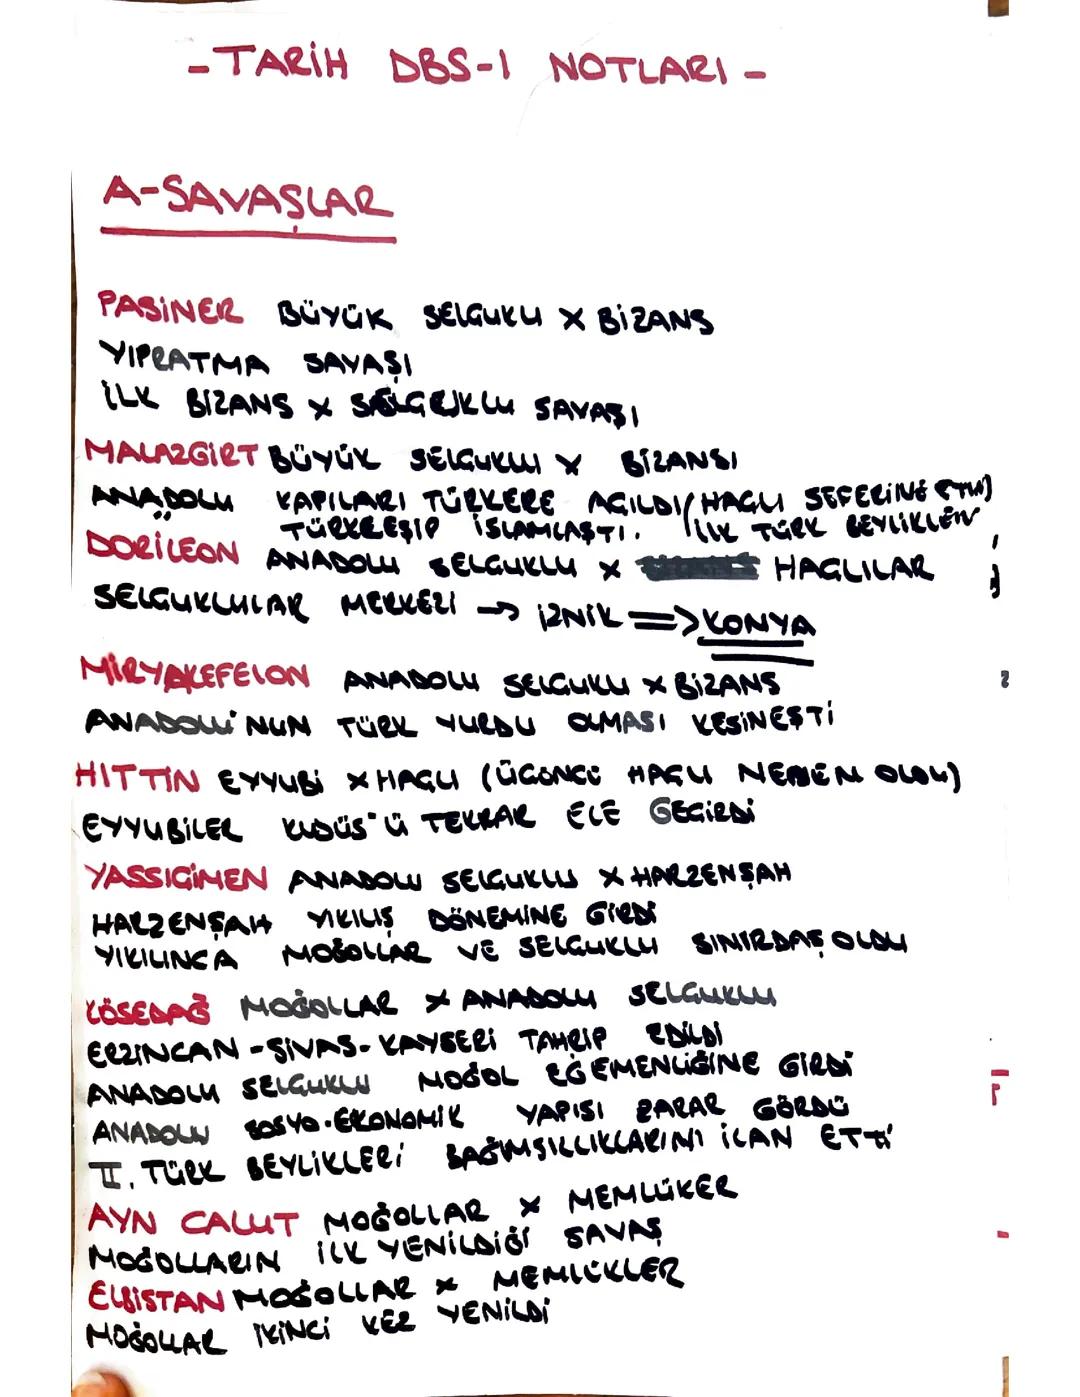 -TARİH DBS-1 NOTLARI-
A-SAVAŞLAR
PASİNER BÜYÜK SELGUKU X BİZANS
YIPRATMA SAVAŞI
İLK BİZANS X SELGUKLU SAVAŞI
MALAZGİRT BÜYÜK SELGUKLU X BİZANSI
ANADOLU KAPILARI TÜRKLERE AÇILDI/HAÇLI SEFERİNE ETKİ)
TÜRKLEŞİP İSLAMLAŞTI. /İLK TÜRK BEYLİKLERİ
DORİLEON ANADOLU SELGUKLU X HAGLILAR
SELGUKLULAR MERKEZİ → İZNİK => KONYA
MİRYAKEFELON ANADOLU SELGUKU X BİZANS
ANADOLU'NUN TÜRK YURDU OLMASI KESİNEŞTİ
HITTIN EYYUBİ X HAÇLI (ÜÇÜNCÜ HAÇLI NEDEN OLDU)
EYYUBİLER KUDÜS'Ü TEKRAR ELE GEÇİRDİ
YASSIÇİMEN ANADOLU SELGUKLU X HARZENŞAH
HARZENŞAH YIKILIŞ DÖNEMİNE GİRDİ
YIKILINCA MOĞOLLAR VE SELGUKLU SINIRDAŞ OLDU
KÖSEDAĞ MOĞOLLAR X ANADOLU SELGUKLU
ERZİNCAN-SİVAS-KAYSERİ TAHRİP EDİLDİ
ANADOLU SELGUKLU MOĞOL EGEMENLİĞİNE GİRDİ
ANADOLU SOSYO-EKONOMİK YAPISI ZARAR GÖRDÜ
II. TÜRK BEYLİKLERİ BAĞIMSILLIKLARINI İLAN ETTİ
AYN CALUT MOĞOLLAR X MEMLÜKER
MOĞOLLARIN İLK YENİLDİĞİ SAVAŞ
ELBİSTAN MOĞOLLAR X MEMLÜKLER
MOĞOLLAR İKİNCİ KEZ YENİLDİ